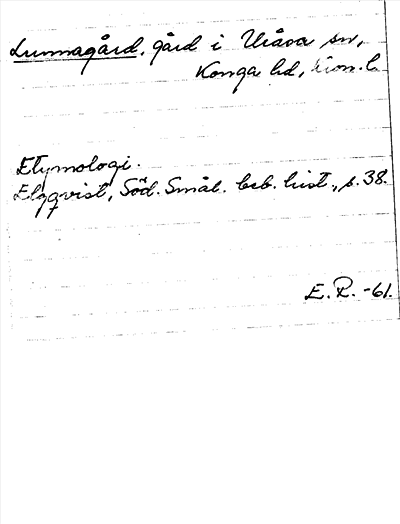 Lunnagård, gård i Uråsa sn,
Konga hd, Kron. l.
Etymologi.
Elgqvist, Söd. Smål. beb. hist., s. 38.
E. R. -61.